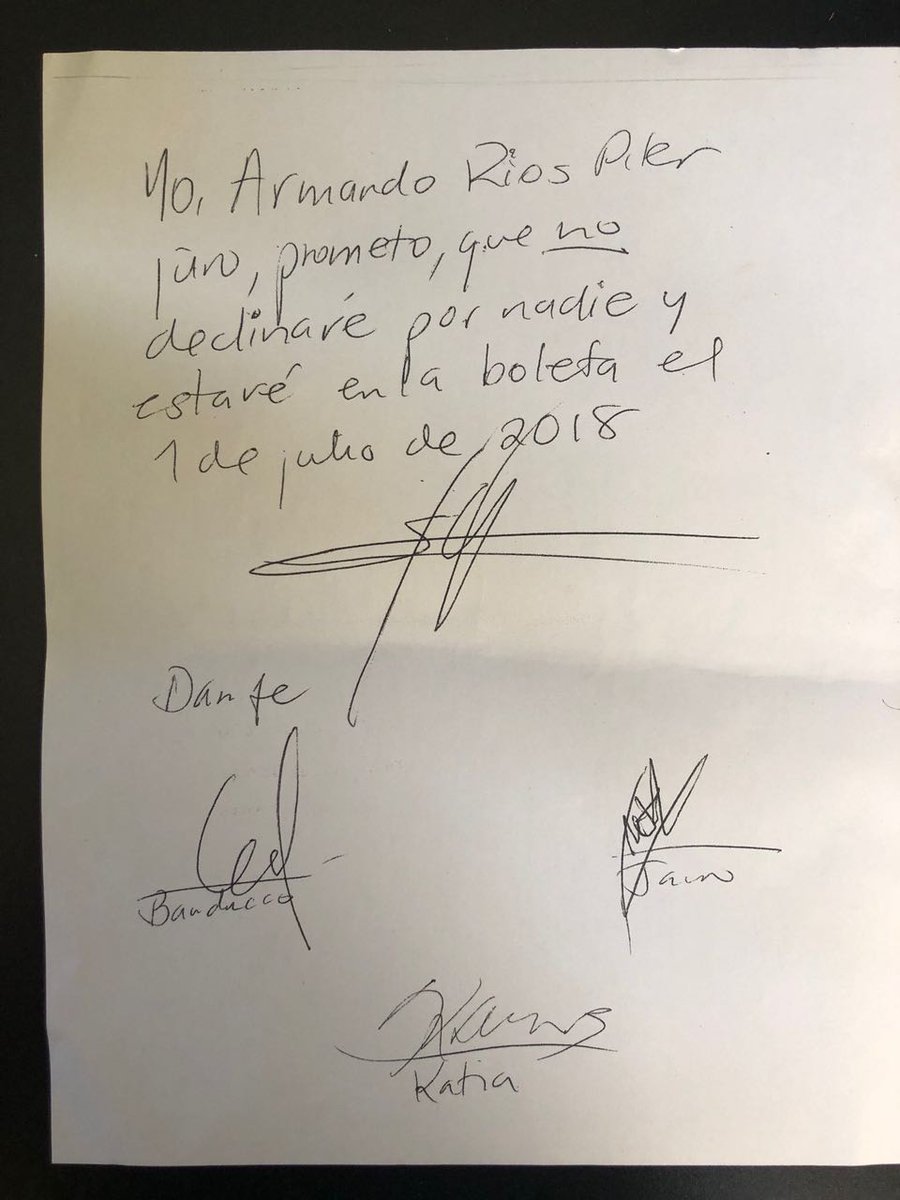 Yo, Armando Ríos Piter
juro, prometo, que no
declinaré por nadie y
estaré en la boleta el
1 de julio de 2018
Dan fe
Banducco
Katia